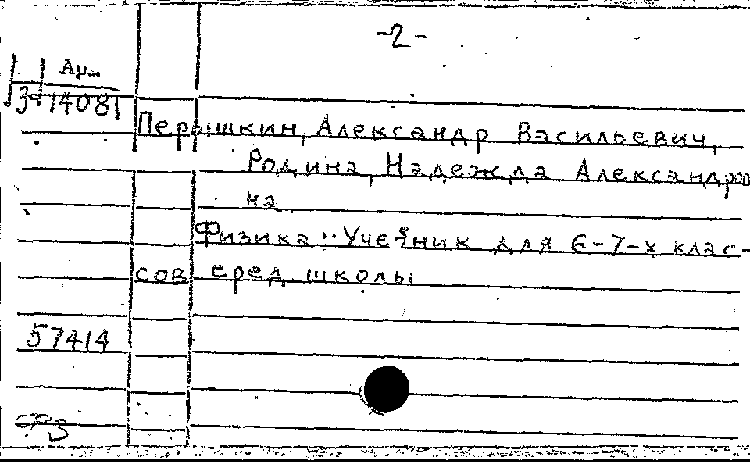 -2-
Арм
3-14081
Перышкин, Александр Васильевич,
Родина, Надежда Александров
на
Физика: Учебник для 6-7-х клас-
сов сред. школы
57414